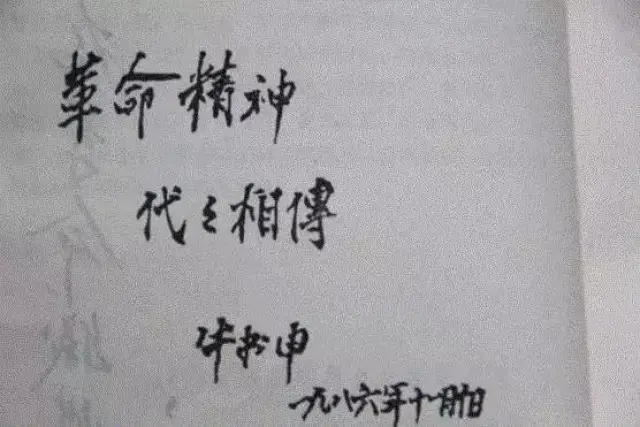 革命精神
代々相傳
一九八六年十一月日